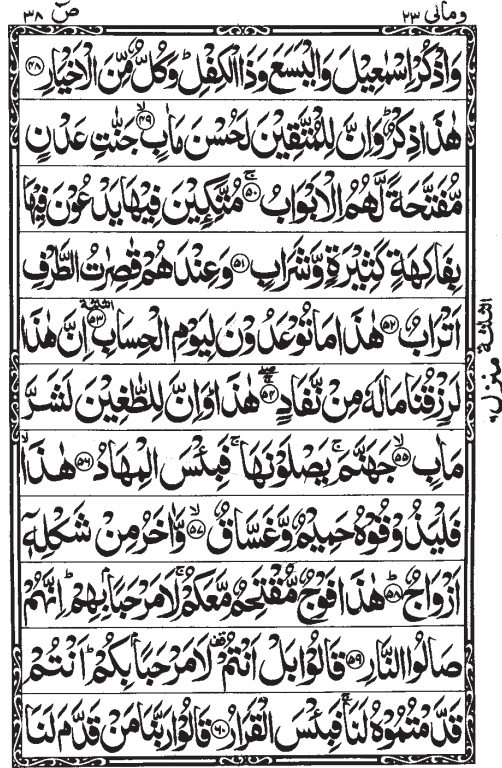 ومالی ۲۳
صٓ ۳۸
وَاذْكُرْ اِسْمٰعِیْلَ وَالْیَسَعَ وَذَا الْكِفْلِ ؕ وَكُلٌّ مِّنَ الْاَخْیَارِ ؕ ﴿۴۸﴾
هٰذَا ذِكْرٌ ؕ وَاِنَّ لِلْمُتَّقِیْنَ لَحُسْنَ مَاٰبٍ ۙ ﴿۴۹﴾ جَنّٰتِ عَدْنٍ
مُّفَتَّحَةً لَّهُمُ الْاَبْوَابُ ۚ ﴿۵۰﴾ مُتَّكِـِٕیْنَ فِیْهَا یَدْعُوْنَ فِیْهَا
بِفَاكِهَةٍ كَثِیْرَةٍ وَّشَرَابٍ ﴿۵۱﴾ وَعِنْدَهُمْ قٰصِرٰتُ الطَّرْفِ
اَتْرَابٌ ﴿۵۲﴾ هٰذَا مَا تُوْعَدُوْنَ لِیَوْمِ الْحِسَابِ ﴿۵۳﴾ اِنَّ هٰذَا
لَرِزْقُنَا مَا لَهٗ مِنْ نَّفَادٍ ۚۖ ﴿۵۴﴾ هٰذَا ؕ وَاِنَّ لِلطّٰغِیْنَ لَشَرَّ
مَاٰبٍ ۙ ﴿۵۵﴾ جَهَنَّمَ ۚ یَصْلَوْنَهَا ۚ فَبِئْسَ الْمِهَادُ ﴿۵۶﴾ هٰذَا ۙ
فَلْیَذُوْقُوْهُ حَمِیْمٌ وَّغَسَّاقٌ ۙ ﴿۵۷﴾ وَّاٰخَرُ مِنْ شَكْلِهٖۤ
اَزْوَاجٌ ؕ ﴿۵۸﴾ هٰذَا فَوْجٌ مُّقْتَحِمٌ مَّعَكُمْ ۚ لَا مَرْحَبًۢا بِهِمْ ؕ اِنَّهُمْ
صَالُوا النَّارِ ﴿۵۹﴾ قَالُوْا بَلْ اَنْتُمْ ۫ لَا مَرْحَبًۢا بِكُمْ ؕ اَنْتُمْ
قَدَّمْتُمُوْهُ لَنَا ۚ فَبِئْسَ الْقَرَارُ ﴿۶۰﴾ قَالُوْا رَبَّنَا مَنْ قَدَّمَ لَنَا
الثلاثة
منزل ۶